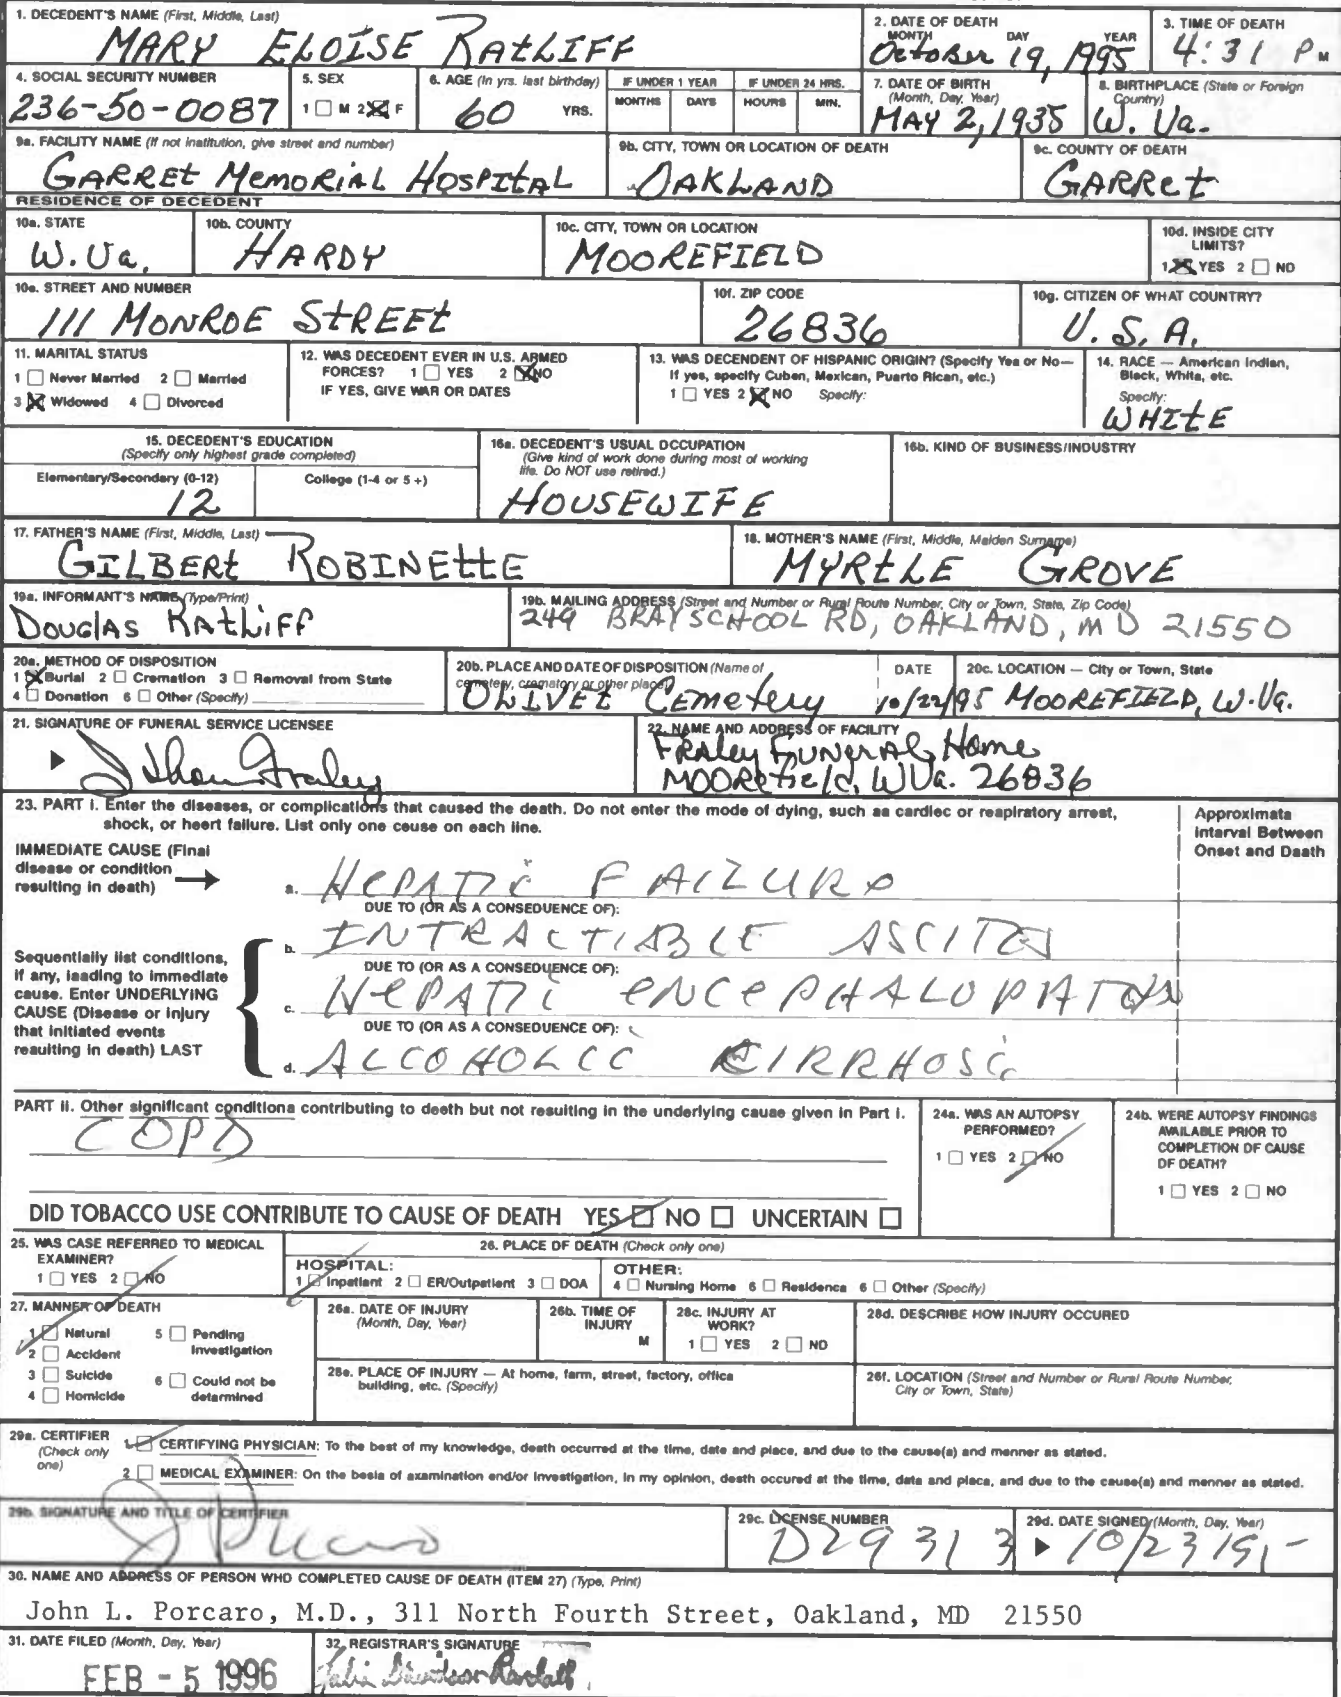 1. DECEDENT'S NAME (First, Middle, Last)
MARY ELOISE RATLIFF
2. DATE OF DEATH
MONTH DAY YEAR
October 19, 1995
3. TIME OF DEATH
4:31 P M
4. SOCIAL SECURITY NUMBER
236-50-0087
5. SEX
1 M 2 F
6. AGE (In yrs. last birthday)
60 YRS.
IF UNDER 1 YEAR
MONTHS DAYS
IF UNDER 24 HRS.
HOURS MIN.
7. DATE OF BIRTH
(Month, Day, Year)
MAY 2, 1935
8. BIRTHPLACE (State or Foreign
Country)
W. Va.
9a. FACILITY NAME (If not institution, give street and number)
GARRET MEMORIAL HOSPITAL
9b. CITY, TOWN OR LOCATION OF DEATH
OAKLAND
9c. COUNTY OF DEATH
GARRET
RESIDENCE OF DECEDENT
10a. STATE
W. Va.
10b. COUNTY
HARDY
10c. CITY, TOWN OR LOCATION
MOOREFIELD
10d. INSIDE CITY
LIMITS?
1 YES 2 NO
10e. STREET AND NUMBER
111 MONROE STREET
10f. ZIP CODE
26836
10g. CITIZEN OF WHAT COUNTRY?
U. S. A.
11. MARITAL STATUS
1 Never Married 2 Married
3 Widowed 4 Divorced
12. WAS DECEDENT EVER IN U.S. ARMED
FORCES? 1 YES 2 NO
IF YES, GIVE WAR OR DATES
13. WAS DECENDENT OF HISPANIC ORIGIN? (Specify Yes or No—
If yes, specify Cuben, Mexican, Puerto Rican, etc.)
1 YES 2 NO Specify:
14. RACE — American Indian,
Black, White, etc.
Specify:
WHITE
15. DECEDENT'S EDUCATION
(Specify only highest grade completed)
Elementary/Secondary (0-12)
12
College (1-4 or 5 +)
16a. DECEDENT'S USUAL OCCUPATION
(Give kind of work done during most of working
life. Do NOT use retired.)
HOUSEWIFE
16b. KIND OF BUSINESS/INDUSTRY
17. FATHER'S NAME (First, Middle, Last)
GILBERT ROBINETTE
18. MOTHER'S NAME (First, Middle, Maiden Surname)
MYRTLE GROVE
19a. INFORMANT'S NAME (Type/Print)
DOUGLAS RATLIFF
19b. MAILING ADDRESS (Street and Number or Rural Route Number, City or Town, State, Zip Code)
249 BRAY SCHOOL RD, OAKLAND, MD 21550
20a. METHOD OF DISPOSITION
1 Burial 2 Cremation 3 Removal from State
4 Donation 6 Other (Specify)
20b. PLACE AND DATE OF DISPOSITION (Name of
cemetery, crematory or other place)
OLIVET Cemetery
DATE
10/22/95
20c. LOCATION — City or Town, State
MOOREFIELD, W.Va.
21. SIGNATURE OF FUNERAL SERVICE LICENSEE
22. NAME AND ADDRESS OF FACILITY
Fraley Funeral Home
MOOREfield, WVa. 26836
23. PART I. Enter the diseases, or complications that caused the death. Do not enter the mode of dying, such as cardiec or reapiratory arrest,
shock, or heert failure. List only one ceuse on each line.
Approximata
Interval Between
Onset and Daath
IMMEDIATE CAUSE (Final
disease or condition
resulting in death)
a. HEPATIC FAILURE
DUE TO (OR AS A CONSEQUENCE OF):
b. INTRACTIABLE ASCITES
DUE TO (OR AS A CONSEQUENCE OF):
c. HEPATIC ENCEPHALOPATHY
DUE TO (OR AS A CONSEQUENCE OF):
d. ALCOHOLIC CIRRHOSIS
Sequentially list conditions,
if any, leading to immediate
cause. Enter UNDERLYING
CAUSE (Disease or Injury
that initiated events
resulting in death) LAST
PART II. Other significant conditiona contributing to deeth but not resulting in the underlying cause given in Part I.
COPD
24a. WAS AN AUTOPSY
PERFORMED?
1 YES 2 NO
24b. WERE AUTOPSY FINDINGS
AVAILABLE PRIOR TO
COMPLETION OF CAUSE
OF DEATH?
1 YES 2 NO
DID TOBACCO USE CONTRIBUTE TO CAUSE OF DEATH YES NO UNCERTAIN
25. WAS CASE REFERRED TO MEDICAL
EXAMINER?
1 YES 2 NO
26. PLACE OF DEATH (Check only one)
HOSPITAL:
1 Inpatient 2 ER/Outpatient 3 DOA
OTHER:
4 Nursing Home 6 Residence 6 Other (Specify)
27. MANNER OF DEATH
1 Natural 5 Pending
Investigation
2 Accident
3 Suicide 6 Could not be
determined
4 Homicide
26a. DATE OF INJURY
(Month, Day, Year)
26b. TIME OF
INJURY
M
28c. INJURY AT
WORK?
1 YES 2 NO
28d. DESCRIBE HOW INJURY OCCURED
28e. PLACE OF INJURY — At home, farm, street, factory, office
building, etc. (Specify)
26f. LOCATION (Street and Number or Rural Route Number,
City or Town, State)
29a. CERTIFIER
(Check only
one)
1 CERTIFYING PHYSICIAN: To the best of my knowledge, death occurred at the time, date and place, and due to the cause(a) and menner as stated.
2 MEDICAL EXAMINER: On the besia of axamination end/or Investigation, in my opinion, death occured at the time, data and placa, and due to the cause(a) and menner as stated.
29b. SIGNATURE AND TITLE OF CERTIFIER
29c. LICENSE NUMBER
D29313
29d. DATE SIGNED (Month, Day, Year)
30. NAME AND ADDRESS OF PERSON WHO COMPLETED CAUSE OF DEATH (ITEM 27) (Type, Print)
John L. Porcaro, M.D., 311 North Fourth Street, Oakland, MD 21550
31. DATE FILED (Month, Day, Year)
FEB - 5 1996
32. REGISTRAR'S SIGNATURE